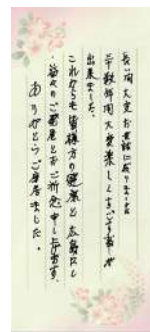 長い間大変お世話に成りました
三十数年間大変楽しくすごす事が
出来ました。
これからも皆様方の健康と
益々のご発展をお祈り申し上げます。
ありがとうございました。